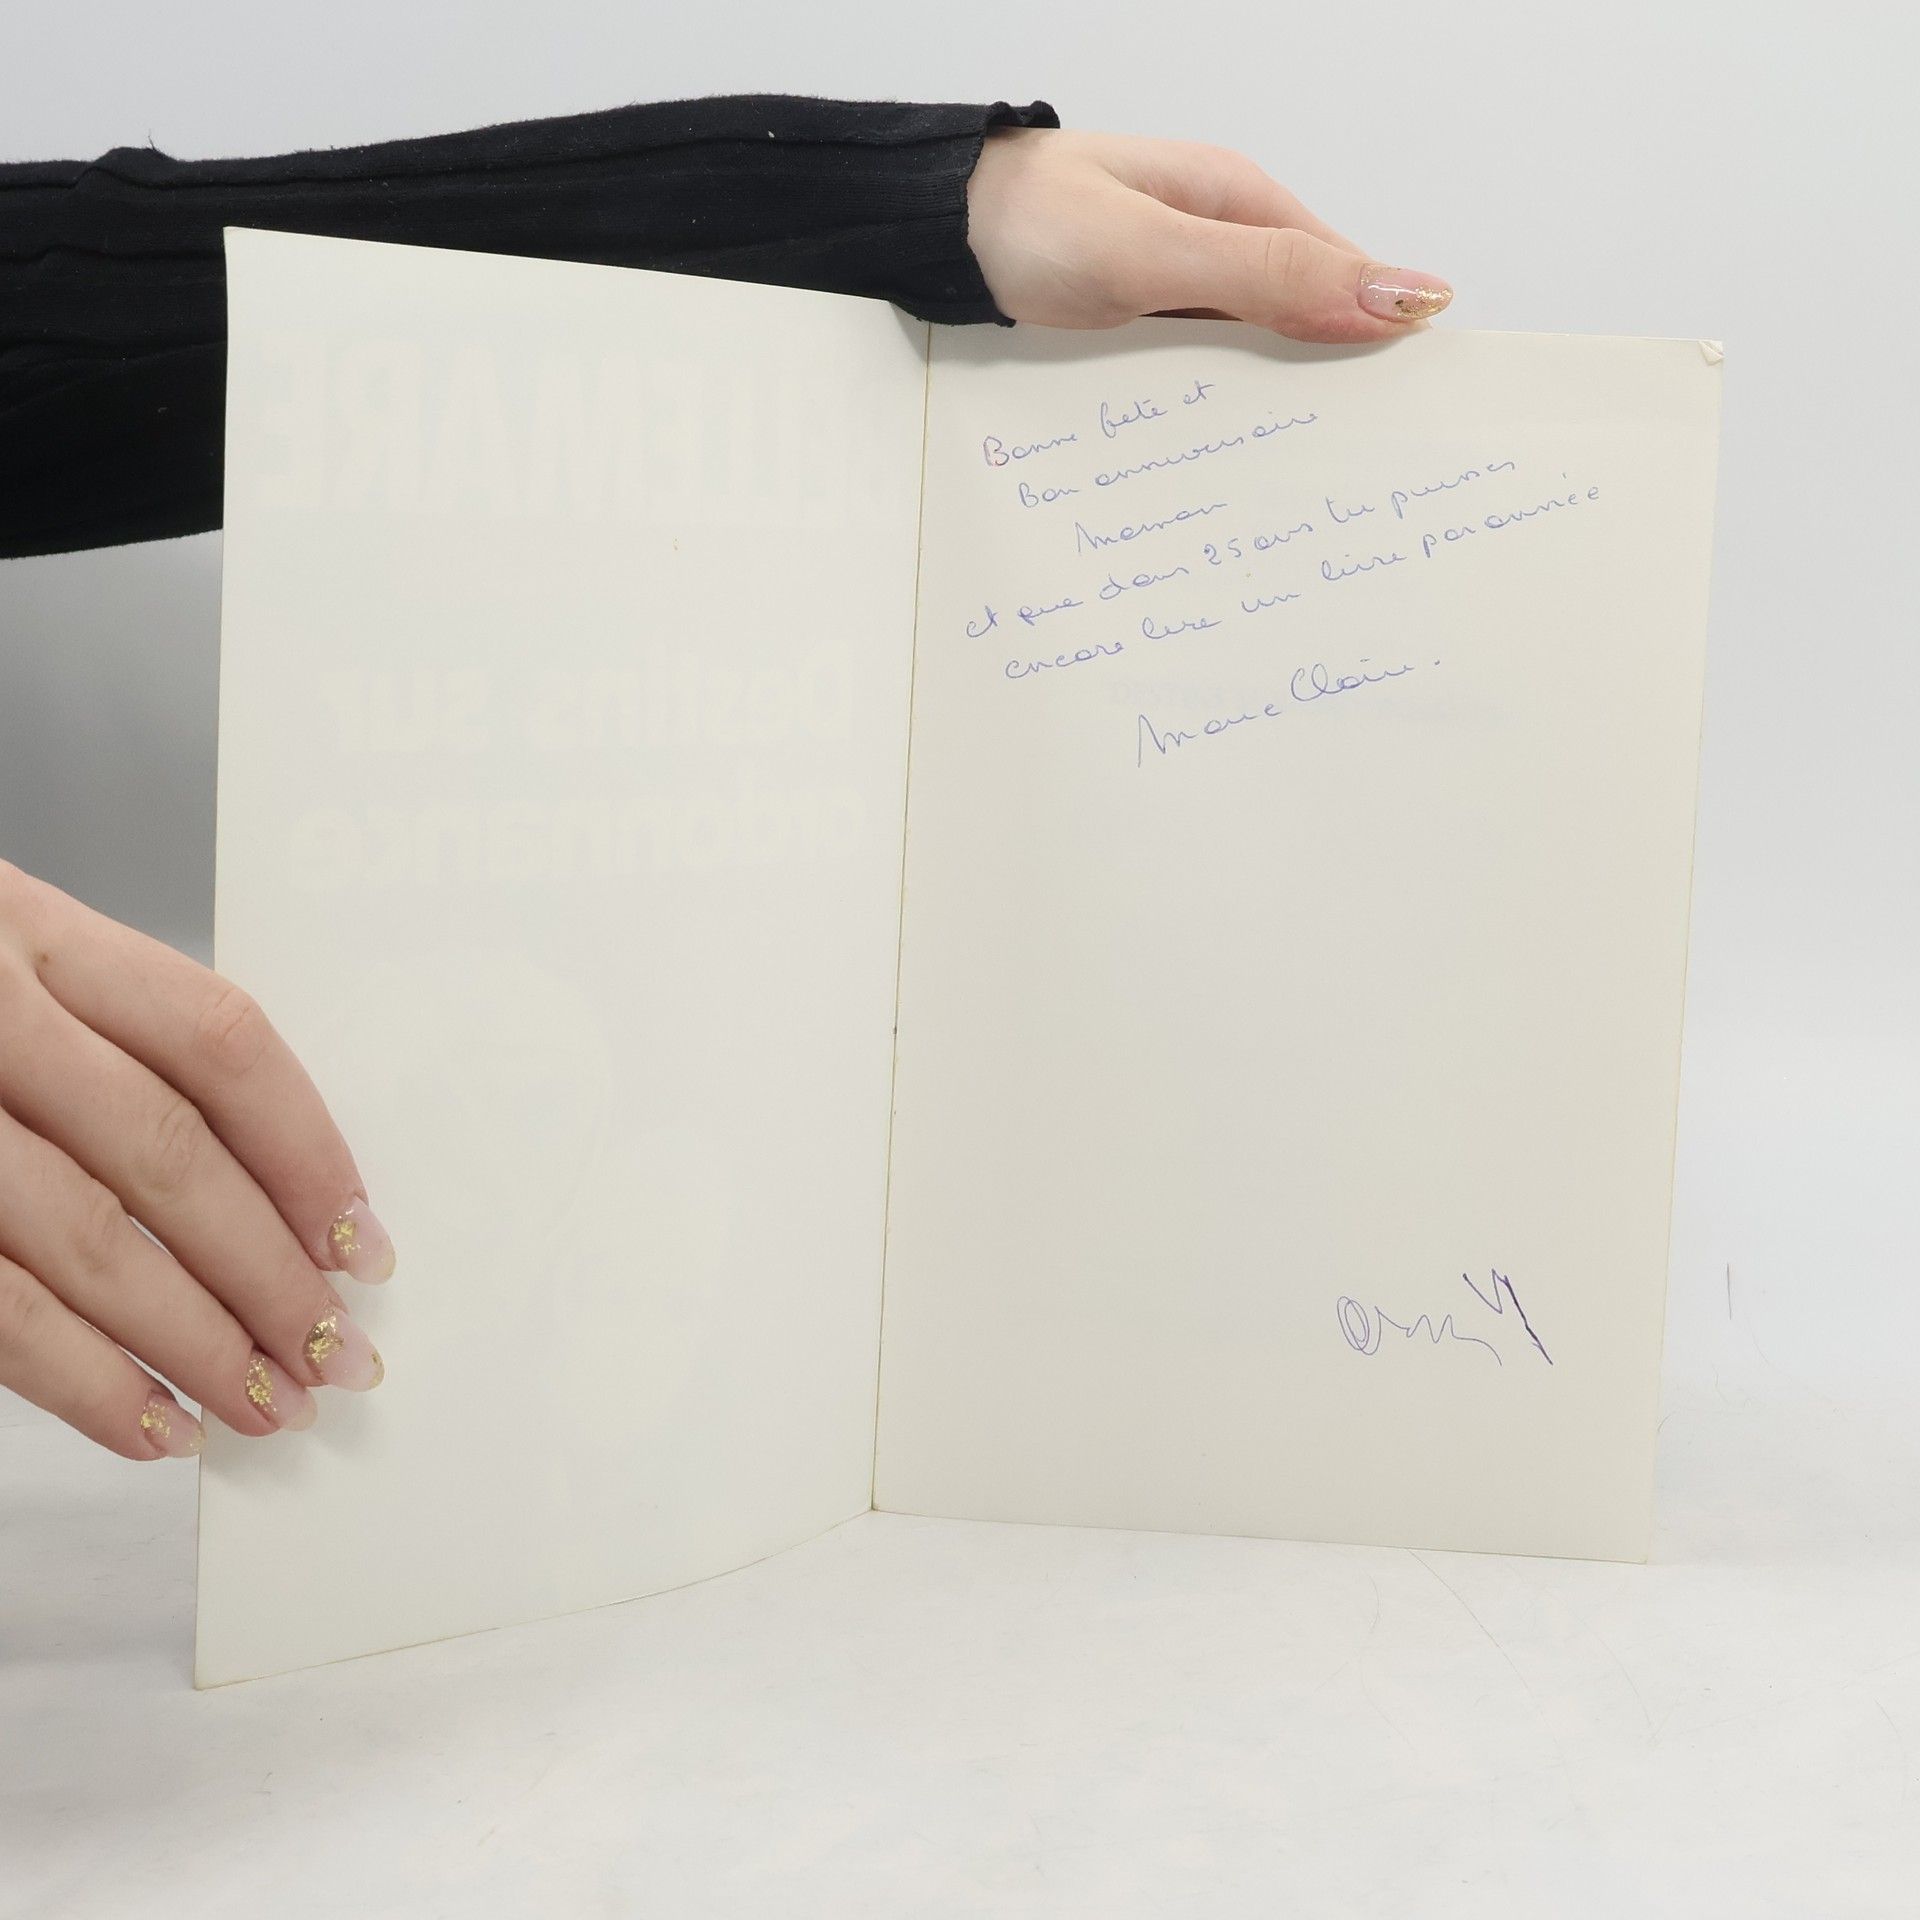 Bonne fete et
Bon anniversaire
Maman
et que dans 25 ans tu puisses
encore lire un livre par année
Marie Claire.